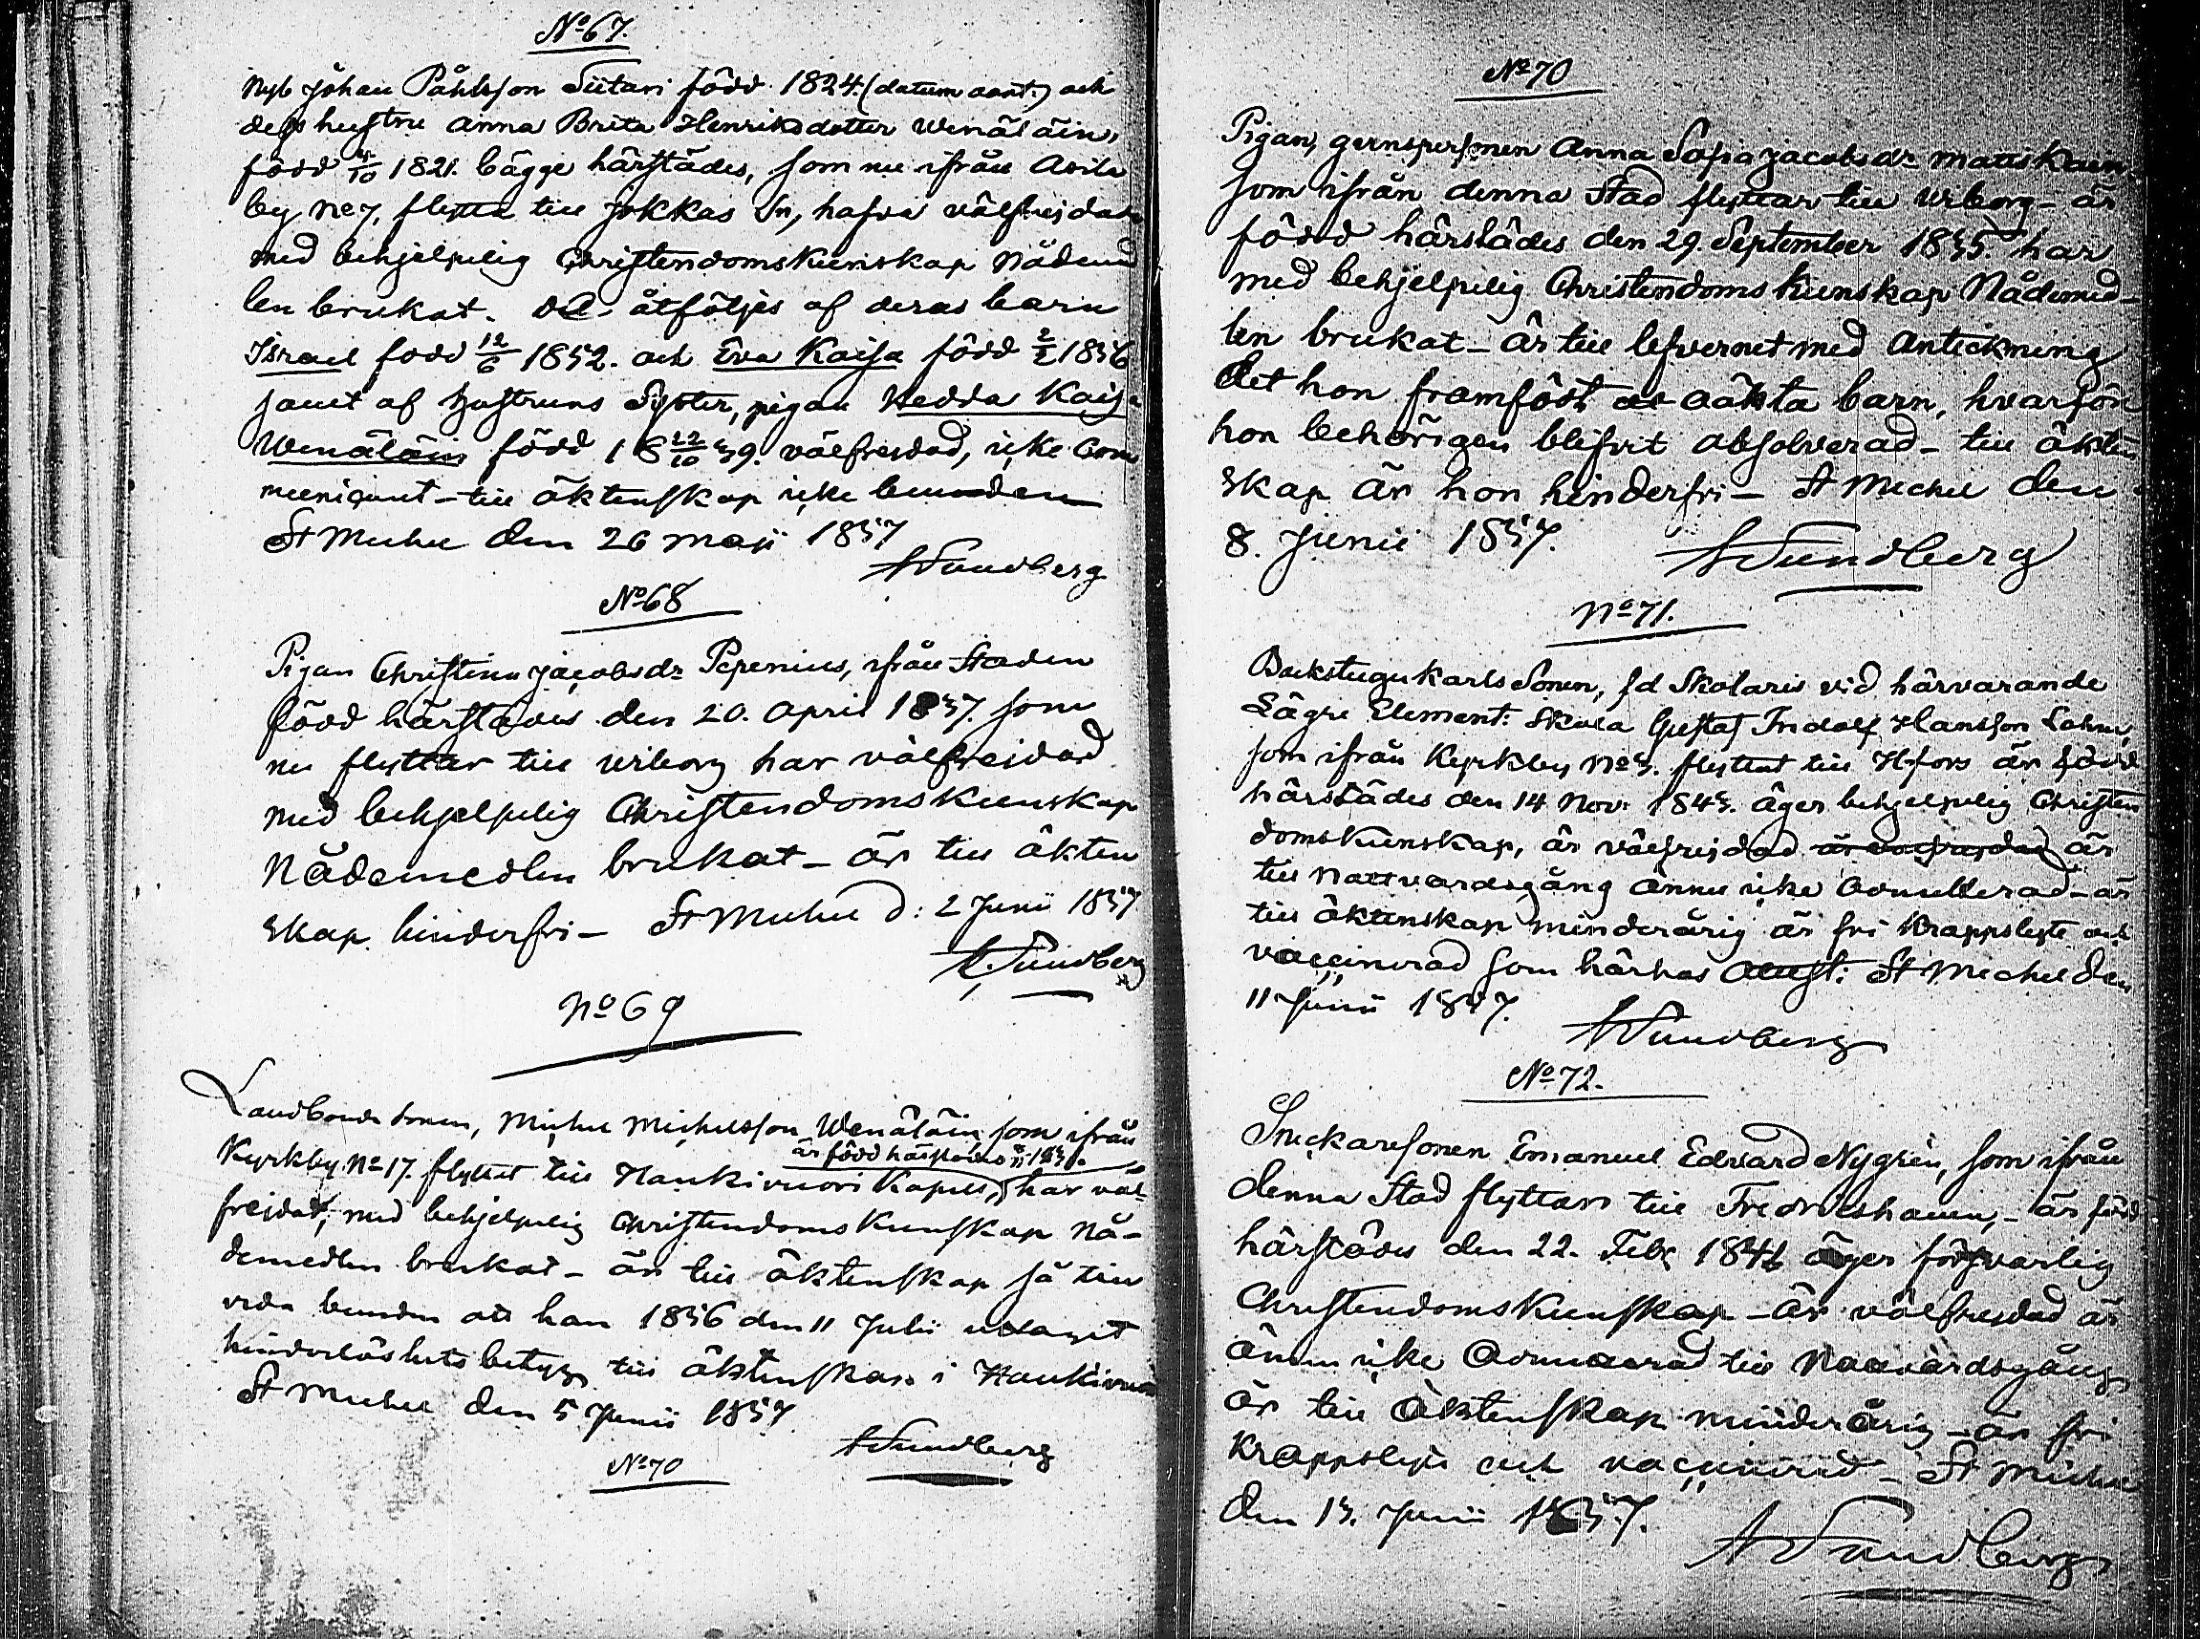 No 67.
Nyb Johan Påhlsson Siitari född 1824. (datum oant.) och
dess hustru Anna Brita Henriksdotter Wenäläin,
född /10 1821. bägge härstädes, som nu ifrån
by No 7, flytta till Jokkas Sn, hafva välfrejdade
med behjelpelig Christendomskunskap Nådemed
len brukat. åtföljes af deras barn
Israel född 12/6 1852. och Eva Kaisa född 2/2 1856
samt af hustruns Syster, pigan Hedda Kaisa
Wenäläin född 18 22/10 39. välfrejdad, icke Com
municant – till äktenskap icke bunden
St Michel den 26 Maji 1857
A Sundberg
No 68
Pigan Christina Jacobsdr Pepenius, ifrån Staden
född härstädes den 20. April 1837. som
nu flyttar till Wiborg har välfrejdad
med behjelpelig Christendomskunskap
Nådemedlen brukat – är till äkten
skap hinderfri – St Michel d: 2 Junii 1857
A Sundberg
No 69
Landbonde sonen, Michel Michelsson Wenäläin som ifrån
är född härstädes
Kyrkby No 17. flyttat till Haukivuori Kapell, har väl
frejdat, med behjelpelig Christendoms Kunskap Nå-
demedlen brukat – är till äktenskap så till
vida bunden att han 1856 den 11 Julii uttagit
hinderlöshets betyg till äktenskap i Haukivuori
St Michel den 5 Junii 1857
A Sundberg
No 70
No 70
Pigan, Anna Sofia Jacobsdr Mattskain
som ifrån denna Stad flyttar till Wiborg – är
född härstädes den 29. September 1835. har
med behjelpelig Christendoms kunskap Nådemed-
len brukat – är till lefvernet med Anteckning
det hon framfödt oäkta barn, hvarför
hon behörigen blifvit absolverad – till äkten
skap är hon hinderfri – St Michel den
8. Junii 1857.
A Sundberg
No 71.
Backstugukarls Sonen, fd Skolaris vid härvarande
Lägre Element: Skola Gustaf Fridolf Hansson Lahn,
som ifrån Kyrkby No 3. flyttat till Hfors är född
härstädes den 14 Nov: 1843. äger behjelpelig Christen
domskunskap, är välfrejdad är välfrejdad är
till Nattvardsgång ännu icke admitterad – är
till äktenskap minderårig är fri Krappslyte och
vaccinerad som härhos attest: St Michel den
11 Junii 1857.
A Sundberg
No 72.
Snickaresonen Emanuel Edvard Nygrén, som ifrån
denna Stad flyttar till Fredrikshamn, – är född
härstädes den 22. Febr 1841 äger försvarlig
Christendoms Kunskap – är välfrejdad är
ännu icke admitterad till Nattvardsgång
är till äktenskap minderårig – är fri
Krappslyte och vaccinerad – St Michel
den 13. Junii 1857.
A Sundberg